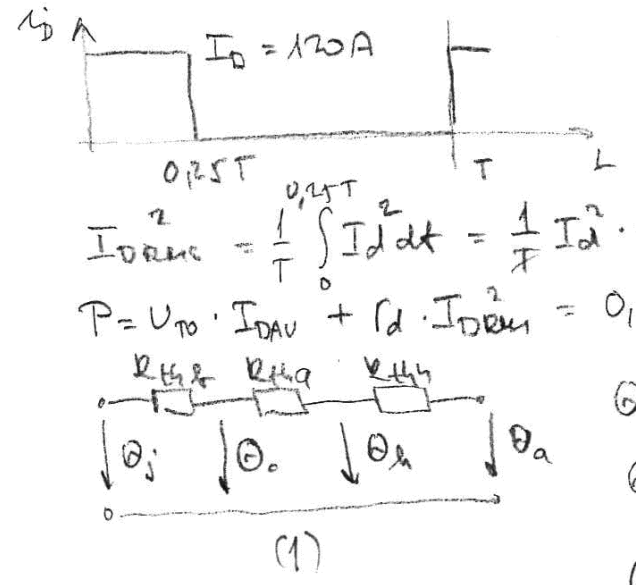 i_D
I_D = 120A
0,25T T t
I²_DRMS = 1/T ∫₀^0,25T Id² dt = 1/T Id² ·
P = U_TO · I_DAV + r_d · I²_DRMS = 0,
R_thb R_tha R_thh
Θ_j Θ_c Θ_h Θ_a
(1)